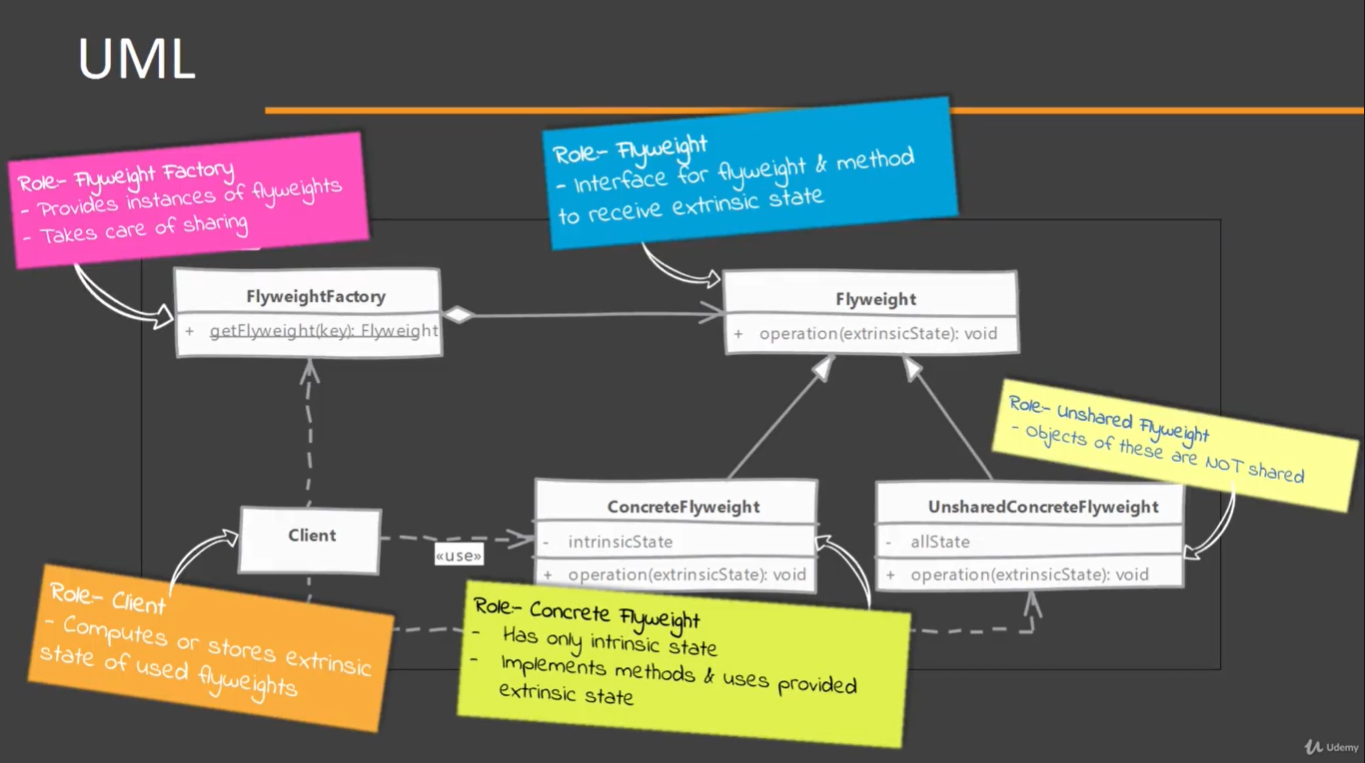 UML
Role- Flyweight Factory
- Provides instances of flyweights
- Takes care of sharing
Role- Flyweight
- Interface for flyweight & method
to receive extrinsic state
FlyweightFactory
+ getFlyweight(key): Flyweight
Flyweight
+ operation(extrinsicState): void
Role- Unshared Flyweight
- Objects of these are NOT shared
Client
«use»
ConcreteFlyweight
- intrinsicState
+ operation(extrinsicState): void
UnsharedConcreteFlyweight
- allState
+ operation(extrinsicState): void
Role- Client
- Computes or stores extrinsic
state of used flyweights
Role- Concrete Flyweight
- Has only intrinsic state
- Implements methods & uses provided
extrinsic state
Udemy